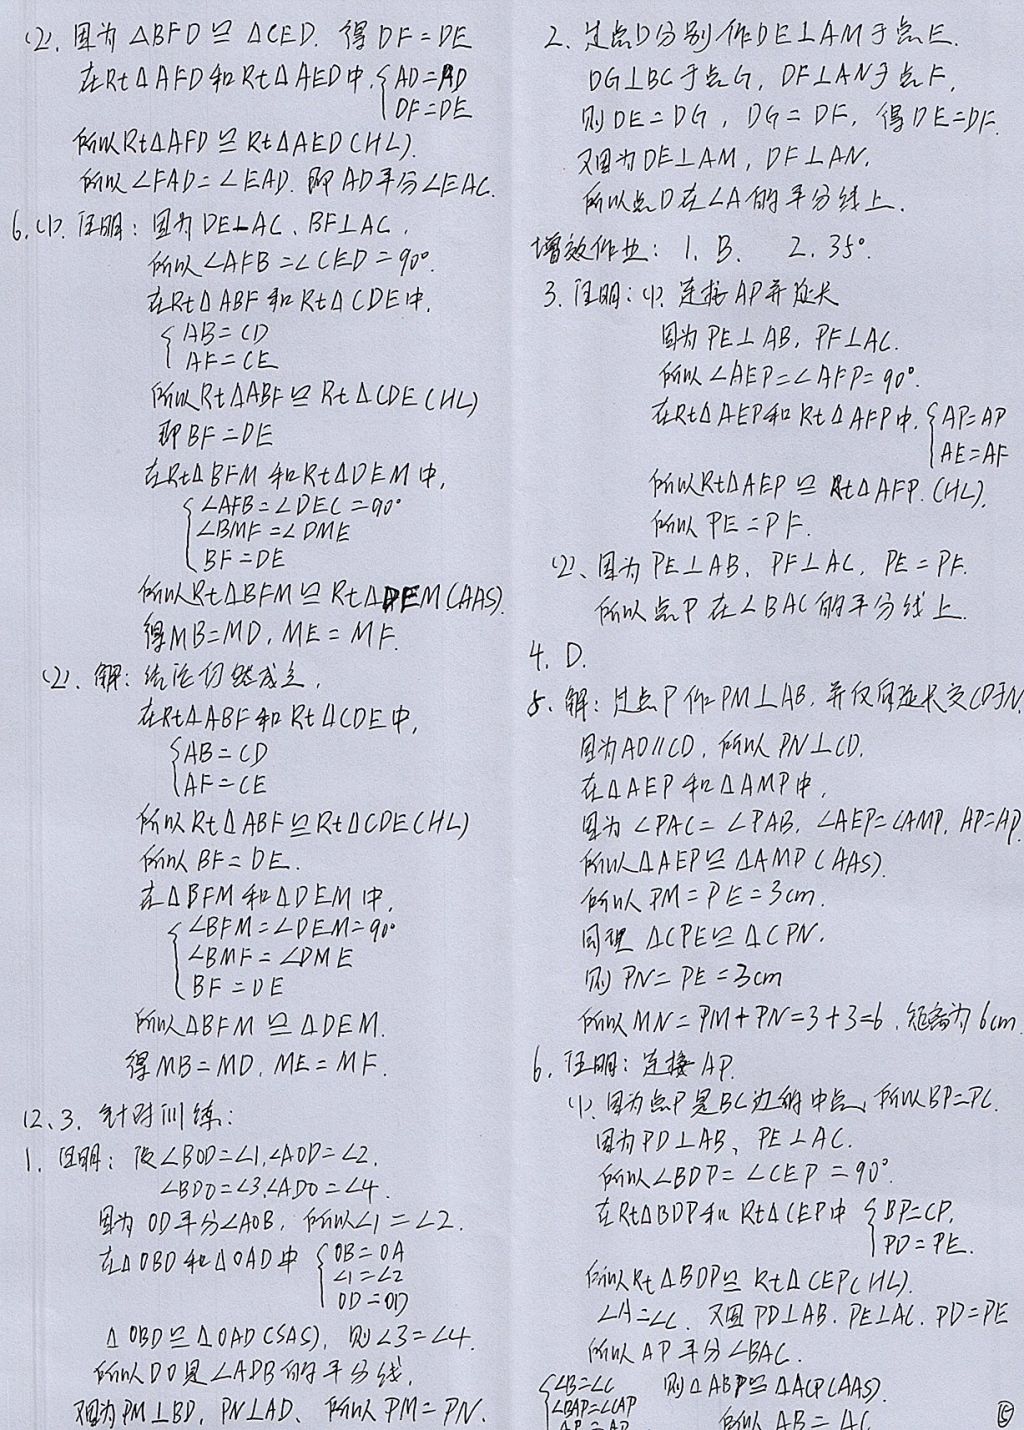 (2). 因为 △BFD ≌ △CED. 得 DF = DE
在Rt△AFD和Rt△AED中, { AD = AD
DF = DE
所以Rt△AFD ≌ Rt△AED(HL).
所以∠FAD = ∠EAD. 即 AD平分∠EAC.
6. (1). 证明: 因为 DE⊥AC、BF⊥AC,
所以∠AFB = ∠CED = 90°.
在Rt△ABF 和 Rt△CDE中,
{ AB = CD
AF = CE
所以Rt△ABF ≌ Rt△CDE(HL)
即 BF = DE
在Rt△BFM 和Rt△DEM中,
{ ∠AFB = ∠DEC = 90°
∠BMF = ∠DME
BF = DE
所以Rt△BFM ≌ Rt△DEM(AAS).
得MB=MD, ME = MF.
(2). 解: 结论仍然成立,
在Rt△ABF和Rt△CDE中,
{ AB = CD
AF = CE
所以Rt△ABF ≌ Rt△CDE(HL)
所以 BF = DE.
在△BFM 和△DEM中,
{ ∠BFM = ∠DEM = 90°
∠BMF = ∠DME
BF = DE
所以△BFM ≌ △DEM.
得MB = MD, ME = MF.
12.3. 针对训练:
1. 证明: 设∠BOD=∠1,∠AOD=∠2.
∠BDO=∠3,∠ADO=∠4.
因为 OD平分∠AOB, 所以∠1 = ∠2.
在△OBD和△OAD中 { OB = OA
∠1 = ∠2
OD = OD
△OBD ≌ △OAD(SAS), 则∠3 = ∠4.
所以DO是∠ADB的平分线,
又因为PM⊥BD, PN⊥AD、所以PM = PN.
2. 过点D分别作DE⊥AM于点E.
DG⊥BC于点G, DF⊥AN于点F,
则DE = DG, DG = DF, 得DE=DF.
又因为DE⊥AM, DF⊥AN,
所以点D在∠A的平分线上.
增效作业: 1. B. 2. 35°
3. 证明: (1). 连接AP并延长
因为 PE⊥AB, PF⊥AC.
所以∠AEP=∠AFP= 90°.
在Rt△AEP和Rt△AFP中, { AP=AP
AE=AF
所以Rt△AEP ≌ Rt△AFP.(HL),
所以 PE = PF.
(2)、因为 PE⊥AB、PF⊥AC, PE = PF.
所以点P在∠BAC的平分线上.
4. D.
5. 解: 过点P作PM⊥AB, 并反向延长交CD于N,
因为AD∥CD, 所以PN⊥CD,
在△AEP和△AMP中,
因为∠PAC=∠PAB, ∠AEP=∠AMP, AP=AP
所以△AEP≌△AMP(AAS).
所以PM=PE=3cm,
同理△CPE≌△CPN,
则 PN= PE = 3cm
所以MN = PM+PN=3+3=6, 距离为6cm.
6. 证明: 连接AP.
(1). 因为点P是BC边的中点, 所以BP=PC.
因为PD⊥AB、PE⊥AC.
所以∠BDP= ∠CEP = 90°.
在Rt△BDP和 Rt△CEP中 { BP=CP,
PD=PE.
所以Rt△BDP≌ Rt△CEP(HL).
∠A=∠C. 又因 PD⊥AB. PE⊥AC. PD=PE
所以AP平分∠BAC.
{ ∠B=∠C 则△ABP≌△ACP(AAS).
∠BAP=∠CAP
AP = AP 所以 AB = AC
⑮